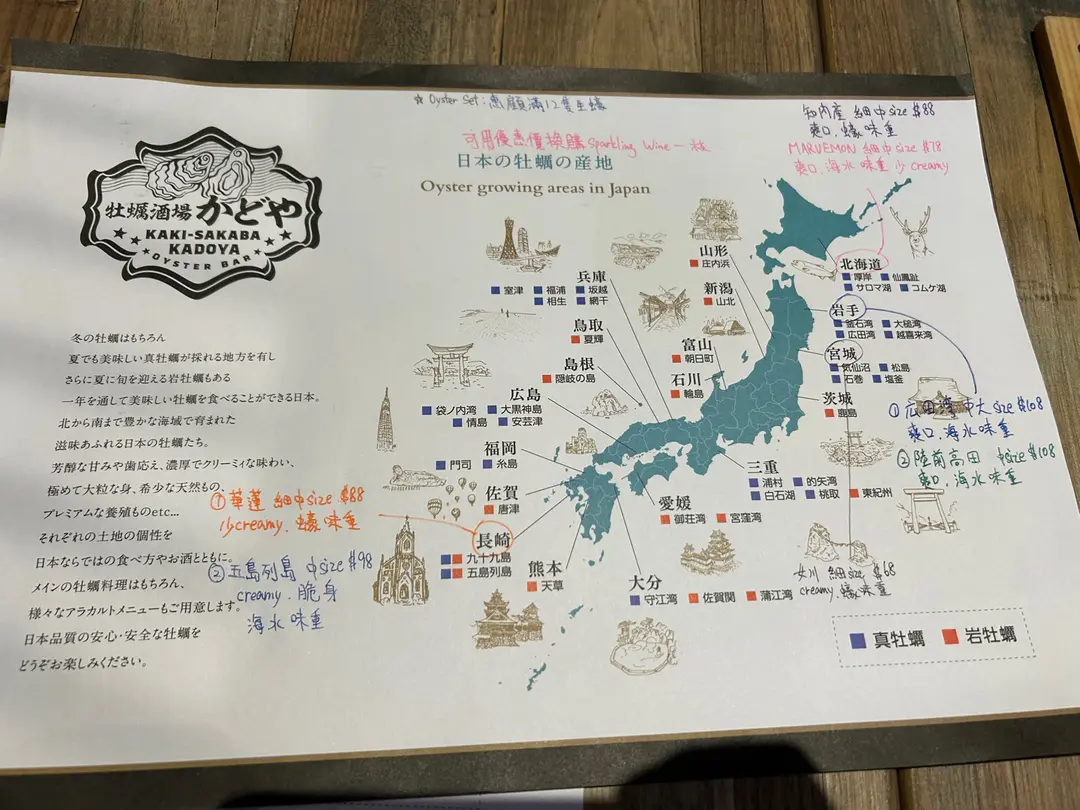 ☆ Oyster Set: 惠顧滿12隻生蠔
可用優惠價換購 Sparkling Wine 一枝
日本の牡蠣の産地
Oyster growing areas in Japan
牡蠣酒場 かどや
KAKI-SAKABA
KADOYA
OYSTER BAR
冬の牡蠣はもちろん
夏でも美味しい真牡蠣が採れる地方を有し
さらに夏に旬を迎える岩牡蠣もある
一年を通して美味しい牡蠣を食べることができる日本。
北から南まで豊かな海域で育まれた
滋味あふれる日本の牡蠣たち。
芳醇な甘みや歯応え、濃厚でクリーミィな味わい、
極めて大粒な身、希少な天然もの、
プレミアムな養殖ものetc...
それぞれの土地の個性を
日本ならではの食べ方やお酒とともに。
メインの牡蠣料理はもちろん、
様々なアラカルトメニューもご用意します。
日本品質の安心・安全な牡蠣を
どうぞお楽しみください。
知内產 細中size $88
爽口.蠔味重
MARUEMON 細中size $78
爽口.海水味重 少creamy
北海道
厚岸 仙鳳趾
サロマ湖 コムケ湖
岩手
釜石湾 大槌湾
広田湾 越喜来湾
宮城
気仙沼 松島
石巻 塩釜
茨城
鹿島
① 広田湾 中大size $108
爽口.海水味重
② 陸前高田 中size $108
爽口.海水味重
女川 細size $68
creamy.蠔味重
山形
庄内浜
新潟
山北
富山
朝日町
石川
輪島
兵庫
室津 福浦 坂越
相生 網干
鳥取
夏輝
島根
隠岐の島
広島
袋ノ内湾 大黒神島
情島 安芸津
福岡
門司 糸島
佐賀
唐津
長崎
九十九島
五島列島
① 華蓮 細中size $88
少creamy.蠔味重
② 五島列島 中size $98
creamy.脆身
海水味重
熊本
天草
大分
守江湾 佐賀関 蒲江湾
愛媛
御荘湾 宮窪湾
三重
浦村 的矢湾
白石湖 桃取 東紀州
真牡蠣 岩牡蠣